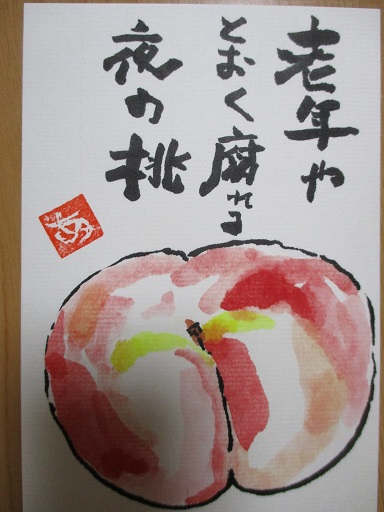 老年や
とおく腐れる
夜の桃
あ